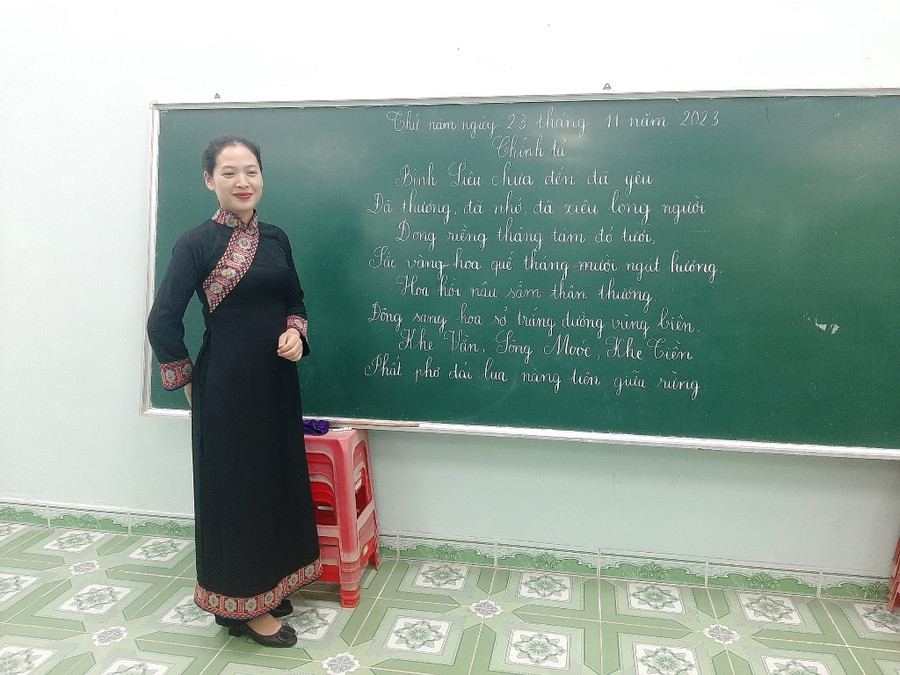 Thứ năm ngày 23 tháng 11 năm 2023
Chính tả
Bình Liêu chưa đến đã yêu
Đã thương, đã nhớ, đã xiêu lòng người
Dong riềng tháng tám đỏ tươi,
Sắc vàng hoa quế tháng mười ngát hương.
Hoa hồi nâu sẫm thân thương
Đông sang hoa sở trắng đường vùng biên.
Khe Vằn, Sông Moóc, Khe Tiền
Phất phơ dải lụa nàng tiên giữa rừng